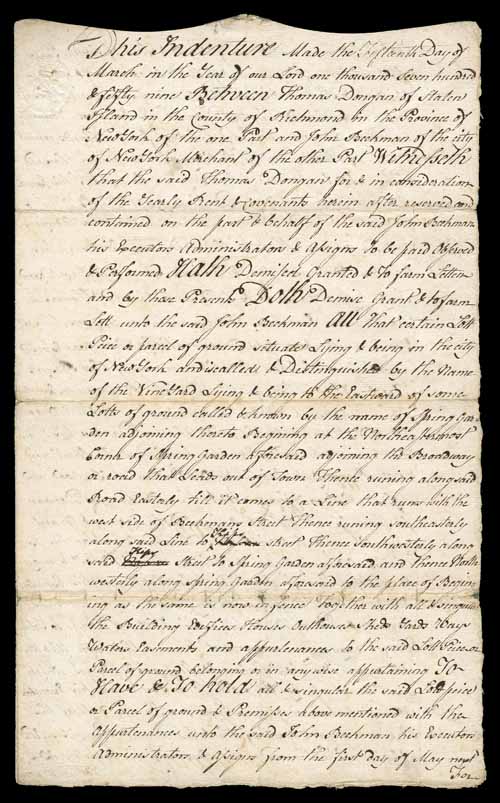 This Indenture Made the Fifteenth Day of
March in the Year of our Lord one thousand Seven hundred
& fifty nine Between Thomas Dongan of Staten
Island in the County of Richmond in the Province of
New York of the one Part and John Beekman of the city
of New York Merchant of the other Part Witnesseth
that the said Thomas Dongan for & in consideration
of the Yearly Rent & Covenants herein after reserved and
contained on the part & behalf of the said John Beekman
his Executors Administrators & Assigns to be paid
& Performed Hath Demised Granted & to farm Letten
and by these Presents Doth Demise Grant & to farm
Lett unto the said John Beekman all that certain Lott
Peice or parcel of ground situate Lying & being in the city
of New York and called & Distinguished by the Name
of the Vineyard Lying & being to the Eastward of some
Lotts of ground called & known by the name of Spring Gar
den adjoining thereto Begining at the Northeastermost
Corner of Spring Garden aforesaid adjoining the Broadway
or road that Leads out of Town Thence runing along said
Road Easterly till it comes to a Line that runs with the
west side of Beekmans Street Thence runing southeasterly
along said Line to street Thence Southwesterly along
said Street to Spring Garden aforesaid and thence North
westerly along Spring Garden aforesaid to the place of Begin
ing as the same is now in fence together with all & singular
the Building Edifices Houses Outhouses Sheds Yards Ways
Waters Easments and appurtenances to the said Lott Peice or
Parcel of ground belonging or in any wise appertaining To
Have & To hold all & singular the said Lott peice
or Parcel of ground & Premises above mentioned with the
appurtenances unto the said John Beekman his Executors
Administrators & Assigns from the first day of May next
For